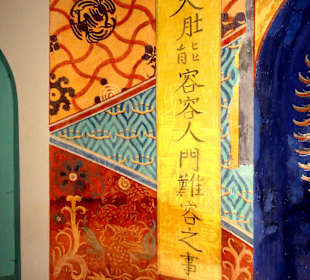 大肚能容容人間難容之事